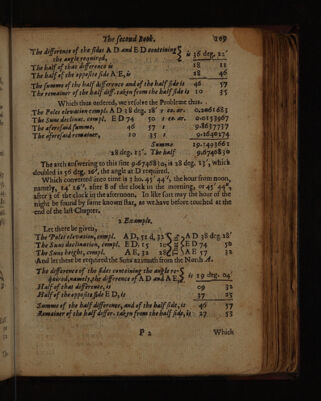 The second Book. 109
The difference of the sides A D and E D containing
the angle required, is 36 deg. 22'
The half of that difference is 18 11
The half of the opposite side A E, is 28 46
The summe of the half difference and of the half side is 46 57
The remainer of the half diff. taken from the half side is 10 35
Which thus ordered, we resolve the Probleme thus.
The Poles elevation compl. A D 38 deg. 28' s co. ar. 0.2061683
The Suns declinat. compl. E D 74 50 s co. ar. 0.0153967
The aforesaid summe, 46 57 s 9.8637737
The aforesaid remainer, 10 35 s 9.2640274
Summe 19.3493661
28 deg. 13'. The half 9.6746830
The arch answering to this sine 9.6746830, is 28 deg. 13', which
doubled is 56 deg. 26', the angle at D required.
Which converted into time is 3 ho. 45' 44", the hour from noon,
namely, 14' 16", after 8 of the clock in the morning, or 45' 44",
after 3 of the clock in the afternoon. In like sort may the hour of the
night be found by some known star, as we have before touched at the
end of the last Chapter.
2 Example.
Let there be given,
The Poles elevation, compl. A D, 51 d, 32' A D 38 deg. 28'
The Suns declination, compl. E D, 15 10 E D 74 50
The Suns height, compl. A E, 32 28 A E 57 32
And let there be required the Suns azimuth from the North A.
The difference of the sides containing the angle re-
quired, namely, the difference of A D and A E, is 19 deg. 04'
Half of that difference, is 09 32
Half of the opposite side E D, is 37 25
Summe of the half difference, and of the half side, is 46 57
Remainer of the half differ. taken from the half side, is 27 53
P 2 Which